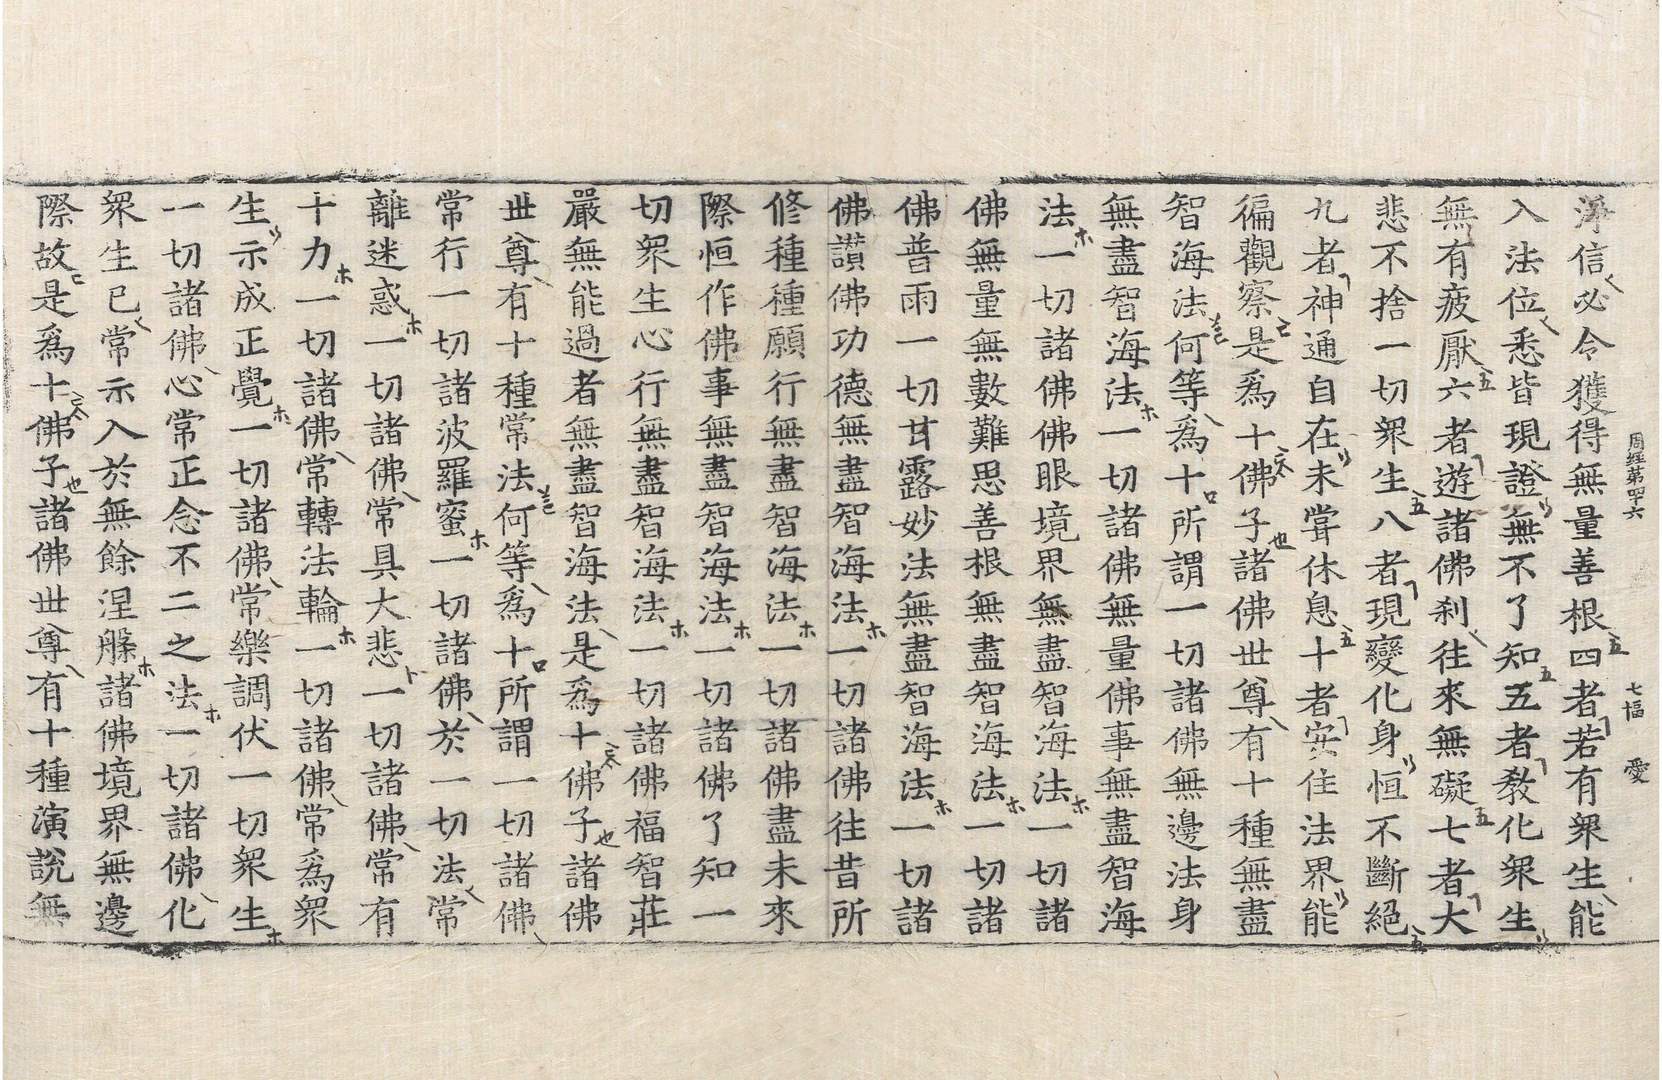 周經第四十六 七幅 愛
淨信必令獲得無量善根四者若有衆生能
入法位悉皆現證無不了知五者教化衆生
無有疲厭六者遊諸佛刹往來無礙七者大
悲不捨一切衆生八者現變化身恒不斷絕
九者神通自在未甞休息十者安住法界能
徧觀察是爲十佛子諸佛世尊有十種無盡
智海法何等爲十所謂一切諸佛無邊法身
無盡智海法一切諸佛無量佛事無盡智海
法一切諸佛佛眼境界無盡智海法一切諸
佛無量無數難思善根無盡智海法一切諸
佛普雨一切甘露妙法無盡智海法一切諸
佛讃佛功德無盡智海法一切諸佛往昔所
修種種願行無盡智海法一切諸佛盡未來
際恒作佛事無盡智海法一切諸佛了知一
切衆生心行無盡智海法一切諸佛福智莊
嚴無能過者無盡智海法是爲十佛子諸佛
世尊有十種常法何等爲十所謂一切諸佛
常行一切諸波羅蜜一切諸佛於一切法常
離迷惑一切諸佛常具大悲一切諸佛常有
十力一切諸佛常轉法輪一切諸佛常爲衆
生示成正覺一切諸佛常樂調伏一切衆生
一切諸佛心常正念不二之法一切諸佛化
衆生已常示入於無餘涅槃諸佛境界無邊
際故是爲十佛子諸佛世尊有十種演說無